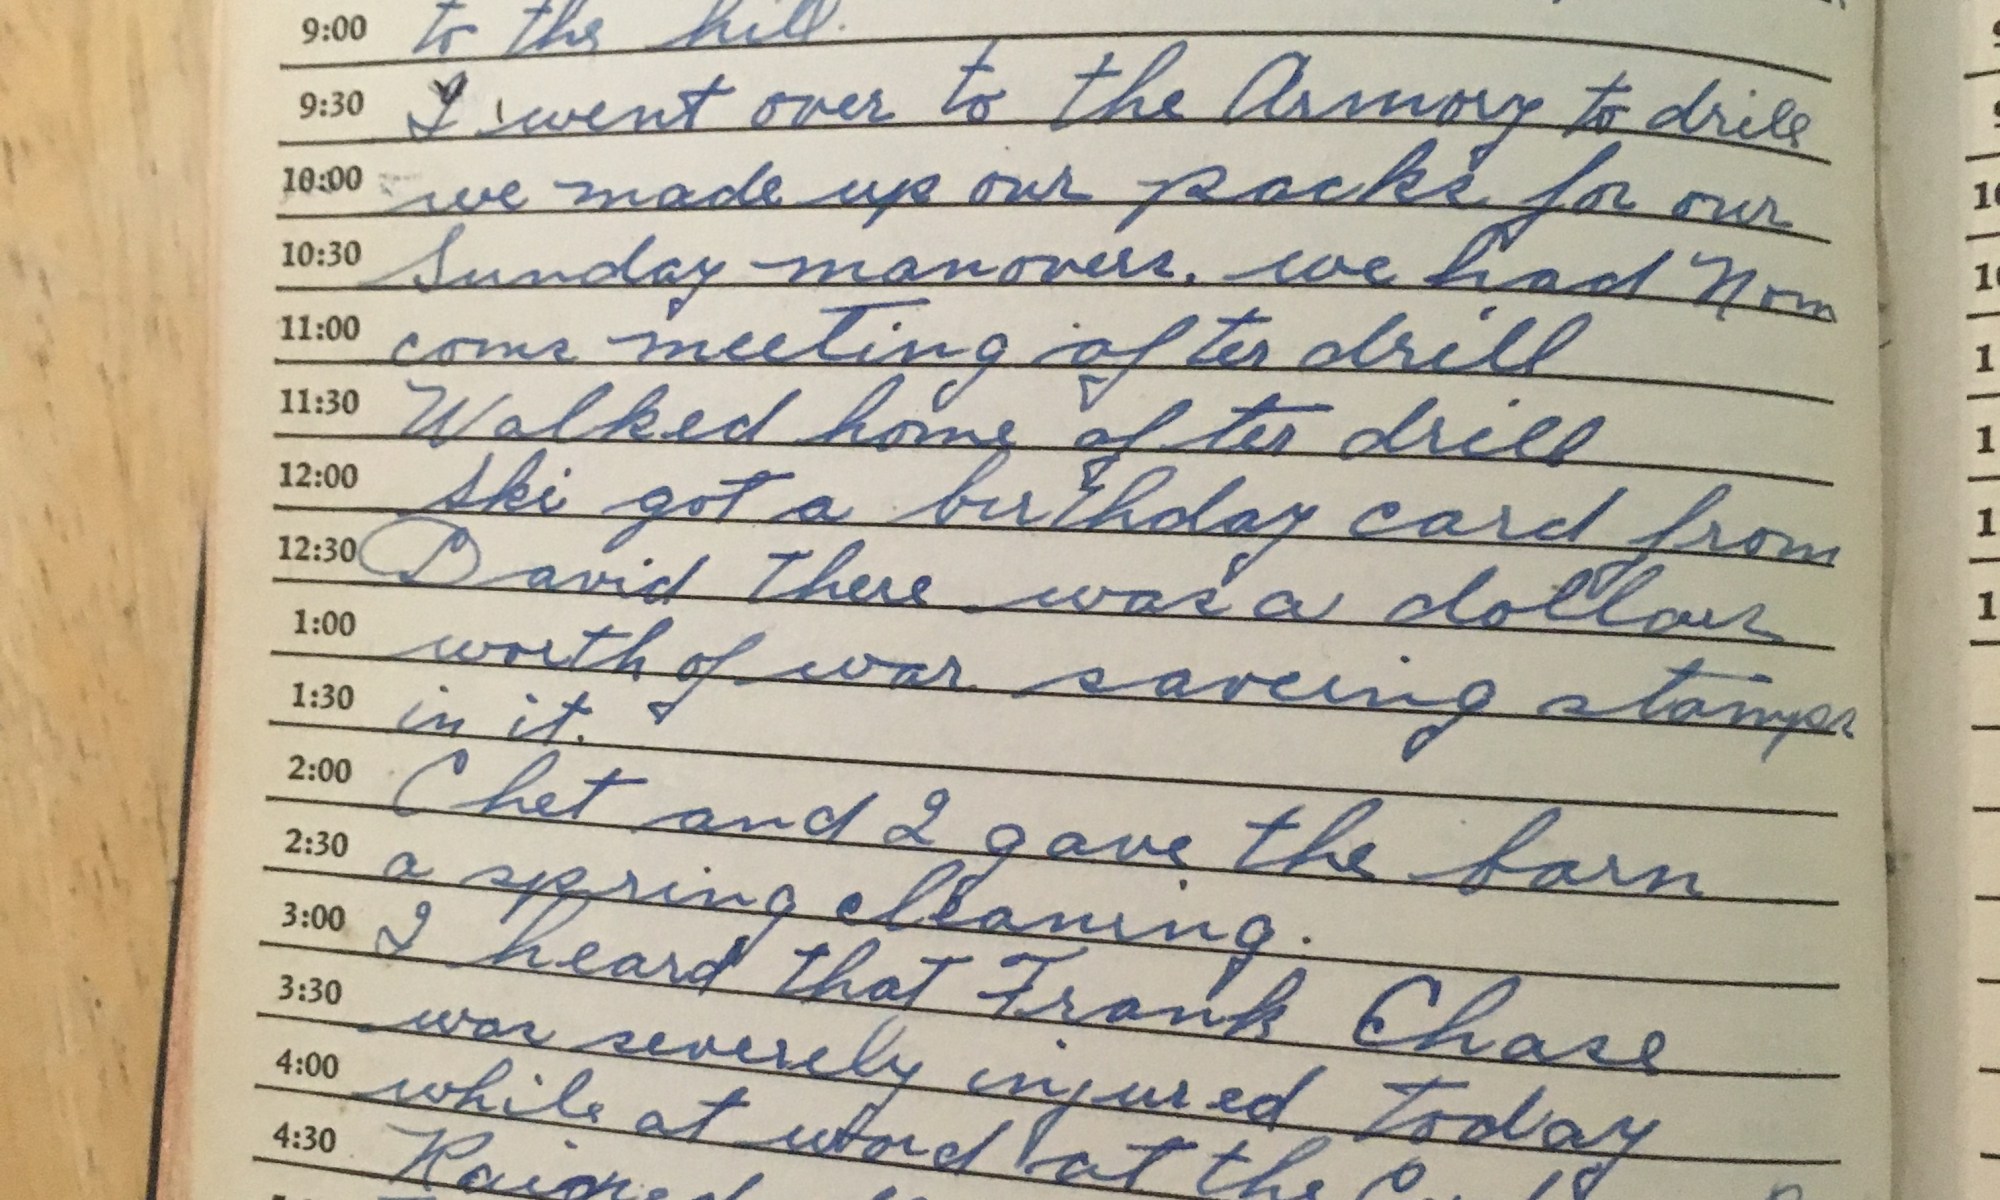 9:00 to the hill.
9:30 I went over to the Armory to drill
10:00 we made up our packs for our
10:30 Sunday manovers. we had Nom
11:00 coms meeting after drill
11:30 Walked home after drill
12:00 Ski got a birthday card from
12:30 David there was a dollars
1:00 worth of war saveing stamps
1:30 in it.
2:00 Chet and I gave the barn
2:30 a spring cleaning.
3:00 I heard that Frank Chase
3:30 was severely injured today
4:00 while at word at the
4:30 Rained